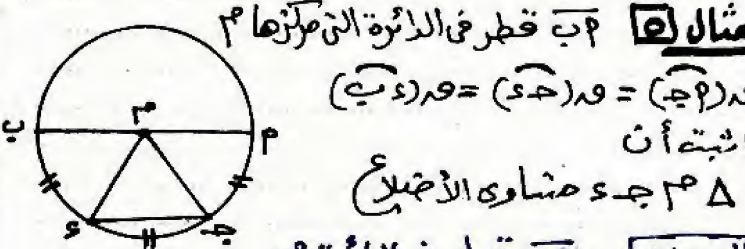 مثال ٥ أب قطر فى الدائرة التى مركزها م
ق(أج) = ق(جء) = ق(ءب)
اثبت أن
Δ م جـ ء متساوى الأضلاع
م
ب
أ
ء
جـ